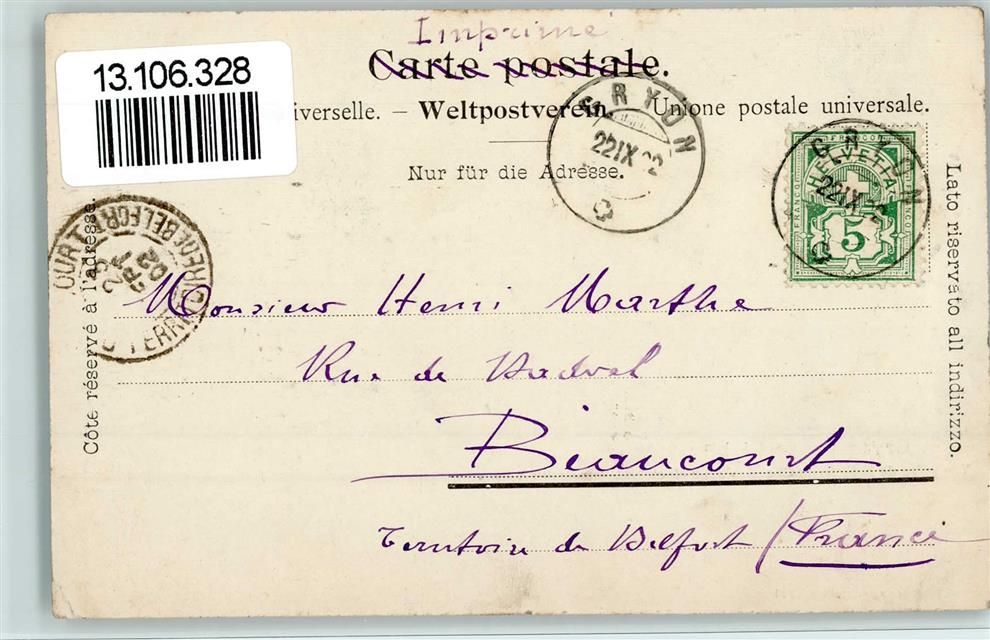 Imprimé
Carte postale.
13.106.328
iverselle. – Weltpostverein. Unione postale universale.
Nur für die Adresse.
GRYON
22 IX 02
GRYON
22 IX
HELVETIA
FRANCO
5
Côte réservé à l'adresse.
Lato riservato all indirizzo.
COURT
TERRE DE BELFORT
02
Monsieur Henri Marthe
Rue de Badvel
Beaucourt
Territoire de Belfort / France